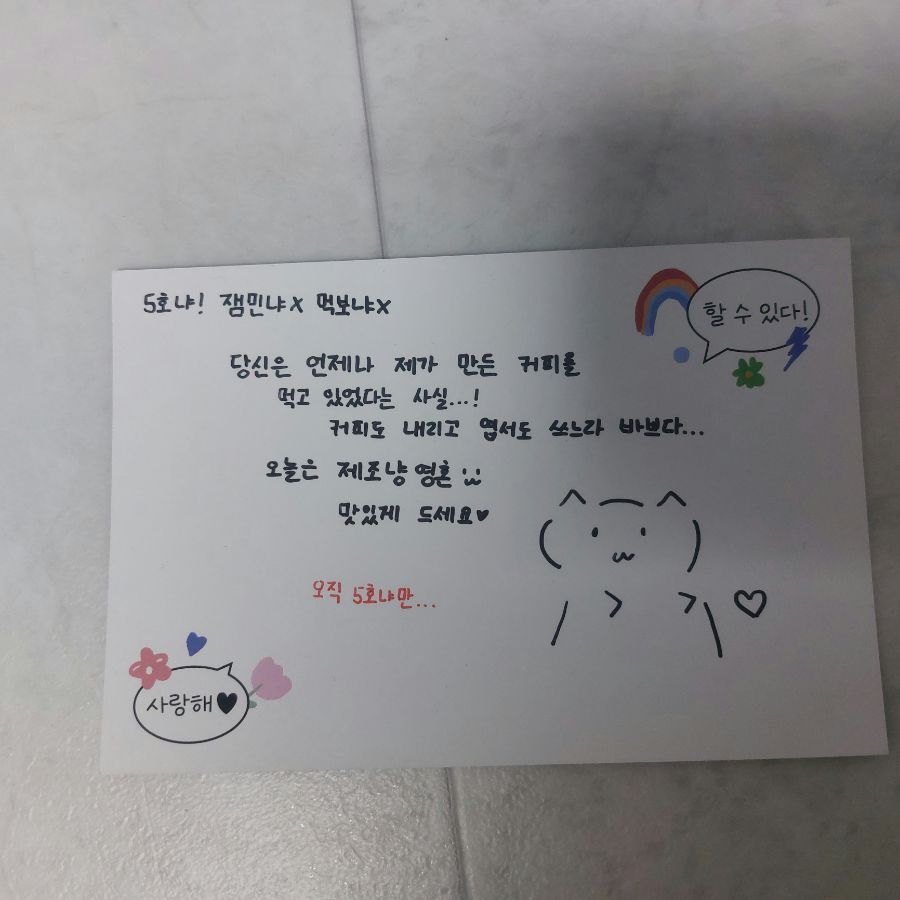 5호냐! 잼민냐x 먹보냐x
할 수 있다!
당신은 언제나 제가 만든 커피를
먹고 있었다는 사실...!
커피도 내리고 엽서도 쓰느라 바쁘다...
오늘은 제조냥 영혼
맛있게 드세요♥
오직 5호냐만...
사랑해♥